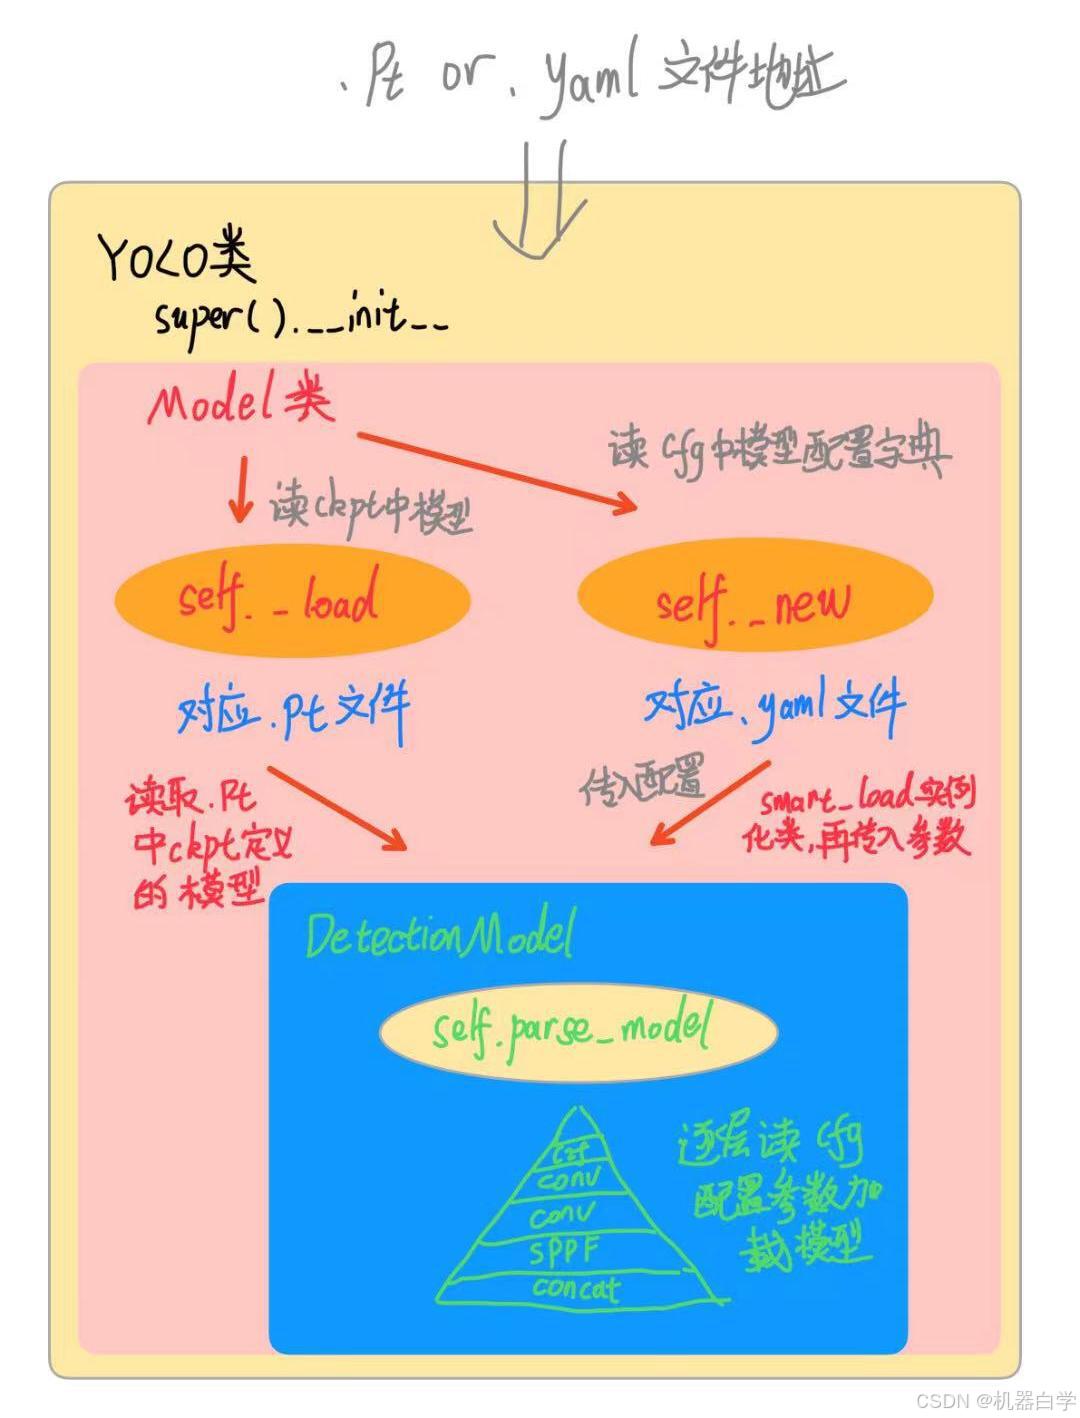 .Pt or .yaml 文件地址
YOLO类
super().__init__
Model类
读cfg中模型配置字典
读ckpt中模型
self._load
self._new
对应.pt文件
对应.yaml文件
读取.Pt
中ckpt定义
的模型
传入配置
smart_load实例
化类,再传入参数
DetectionModel
self.parse_model
conv
conv
SPPF
concat
逐层读cfg
配置参数加
载模型
CSDN @机器白学